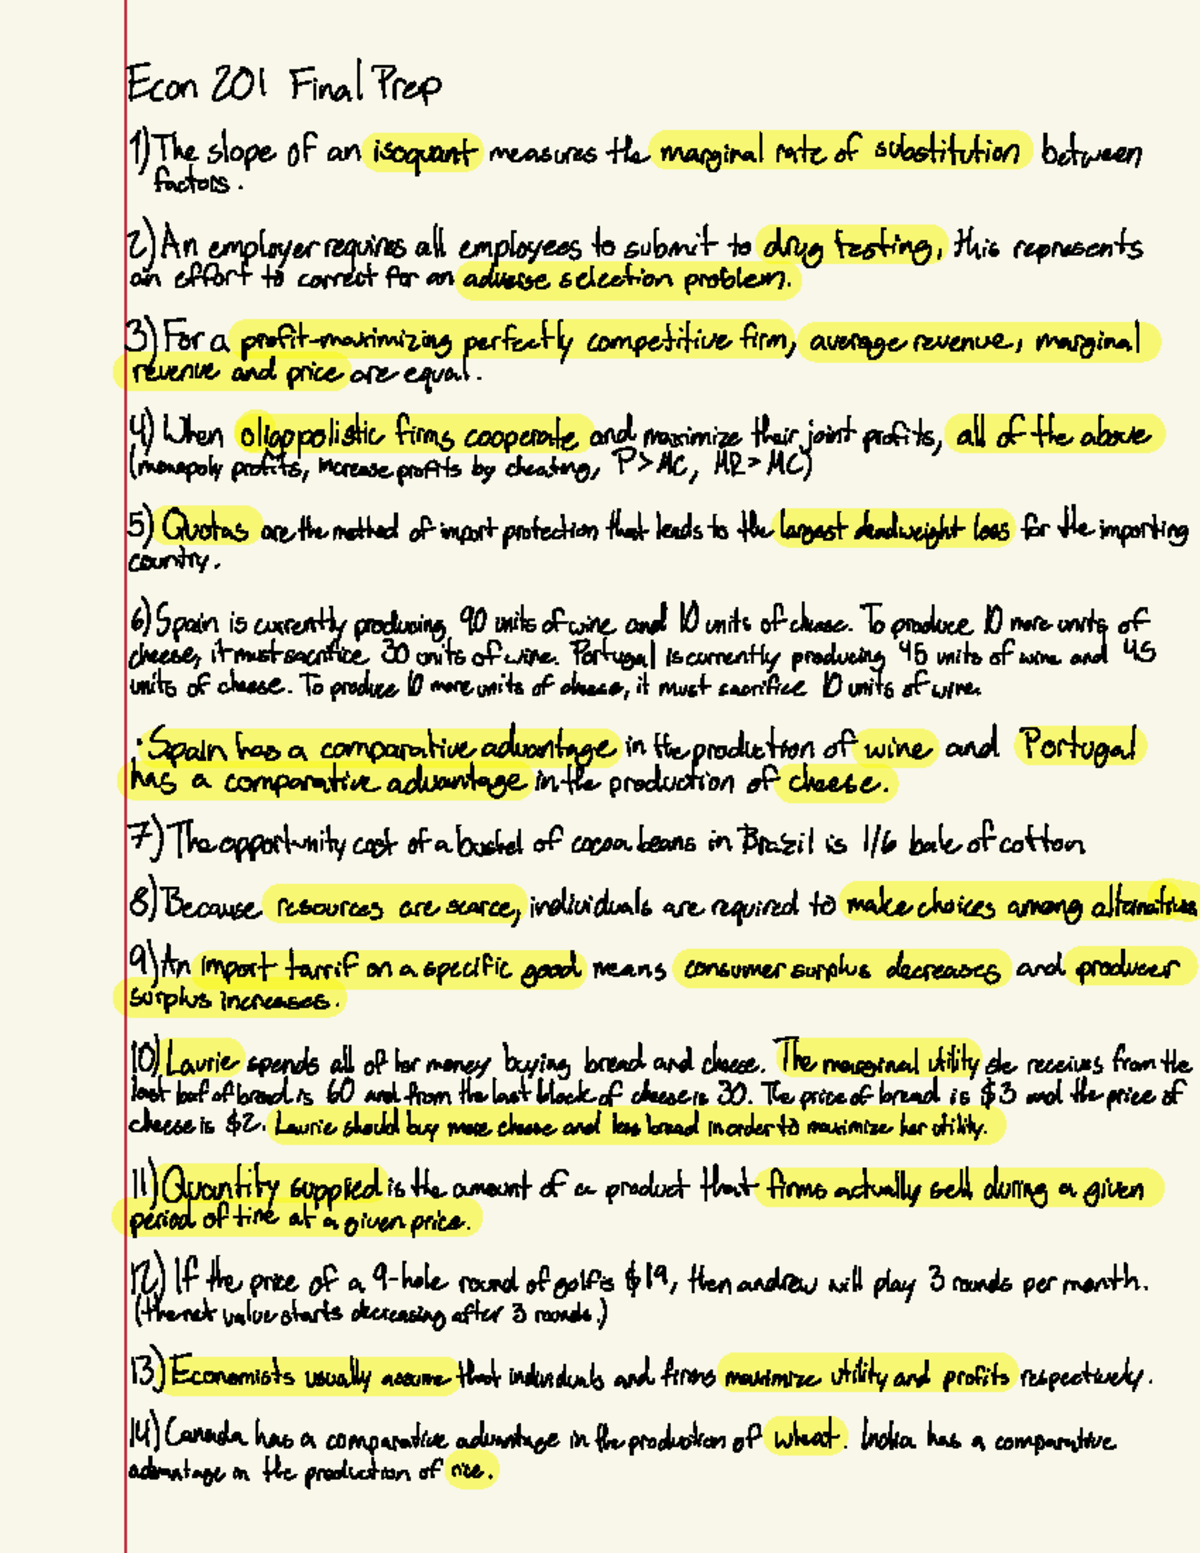 Econ 201 Final Prep
1) The slope of an isoquant measures the marginal rate of substitution between
factors.
2) An employer requires all employees to submit to drug testing, this represents
an effort to correct for an adverse selection problem.
3) For a profit-maximizing perfectly competitive firm, average revenue, marginal
revenue and price are equal.
4) When oligopolistic firms cooperate and maximize their joint profits, all of the above
(monopoly profits, increase profits by cheating, P>MC, MR>MC)
5) Quotas are the method of import protection that leads to the largest deadweight loss for the importing
country.
6) Spain is currently producing 90 units of wine and 10 units of cheese. To produce 10 more units of
cheese, it must sacrifice 30 units of wine. Portugal is currently producing 45 units of wine and 45
units of cheese. To produce 10 more units of cheese, it must sacrifice 10 units of wine.
· Spain has a comparative advantage in the production of wine and Portugal
has a comparative advantage in the production of cheese.
7) The opportunity cost of a bushel of cocoa beans in Brazil is 1/6 bale of cotton
8) Because resources are scarce, individuals are required to make choices among alternatives
9) An import tarrif on a specific good means consumer surplus decreases and producer
surplus increases.
10) Laurie spends all of her money buying bread and cheese. The marginal utility she receives from the
last loaf of bread is 60 and from the last block of cheese is 30. The price of bread is $3 and the price of
cheese is $2. Laurie should buy more cheese and less bread in order to maximize her utility.
11) Quantity supplied is the amount of a product that firms actually sell during a given
period of time at a given price.
12) If the price of a 9-hole round of golf is $19, then andrew will play 3 rounds per month.
(the net value starts decreasing after 3 rounds.)
13) Economists usually assume that individuals and firms maximize utility and profits respectively.
14) Canada has a comparative advantage in the production of wheat. India has a comparative
advantage in the production of rice.